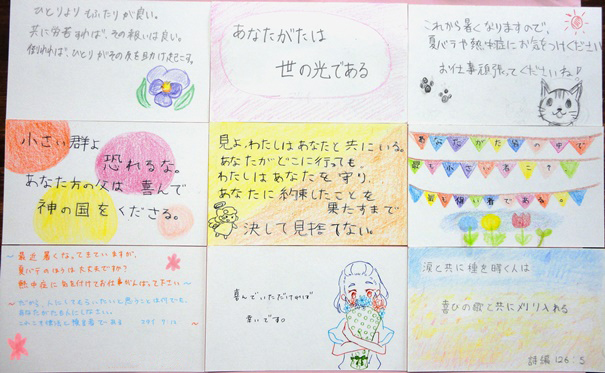 ひとりよりもふたりが良い。
共に労苦すれば、その報いは良い。
倒れれば、ひとりがその友を助け起こす。
あなたがたは
世の光である
これから暑くなりますので、
夏バテや熱中症にお気をつけください
お仕事頑張ってくださいね♪
小さい群よ
恐れるな。
あなた方の父は 喜んで
神の国をくださる。
見よ、わたしはあなたと共にいる。
あなたがどこに行っても、
わたしはあなたを守り、
あなたに約束したことを
果たすまで
決して見捨てない。
あなたがた皆の中で
最も小さい者こそ
最も偉い者である。
〜最近 暑くなってきていますが、
夏バテのほうは大丈夫ですか?
熱中症に気を付けてお仕事がんばって下さい〜
〜だから、人にしてもらいたいと思うことは何でも、
あなたがたも人にしなさい。
これこそ律法と預言者である
喜んでいただければ
幸いです。
涙と共に種を蒔く人は
喜びの歌と共に刈り入れる
詩編 126:5